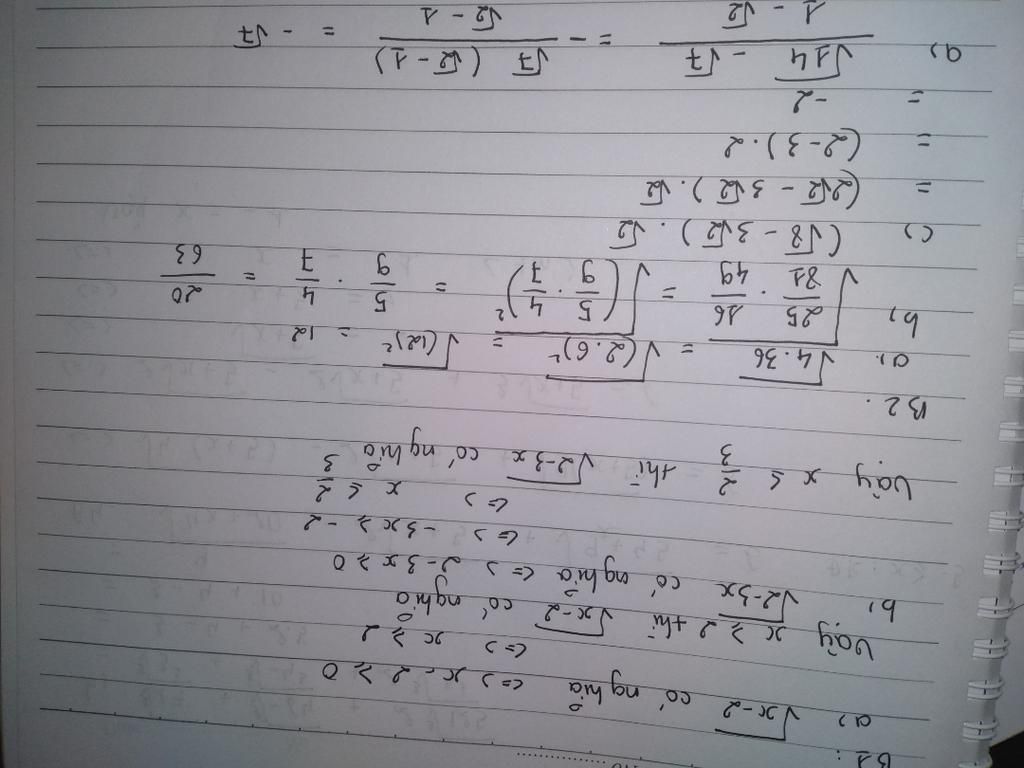 B1:
a) √x-2 có nghĩa <=> x-2 ≥ 0
<=> x ≥ 2
Vậy x ≥ 2 thì √x-2 có nghĩa
b, √2-3x có nghĩa <=> 2-3x ≥ 0
<=> -3x ≥ -2
<=> x ≤ 2/3
Vậy x ≤ 2/3 thì √2-3x có nghĩa
B2.
a). √4.36 = √(2.6)² = √(12)² = 12
b, √25/81 . 16/49 = √(5/9 . 4/7)² = 5/9 . 4/7 = 20/63
c) (√8 - 3√2) . √2
= (2√2 - 3√2) . √2
= (2-3) . 2
= -2
a) √14 - √7 / 1 - √2 = - √7 (√2 - 1) / √2 - 1 = - √7